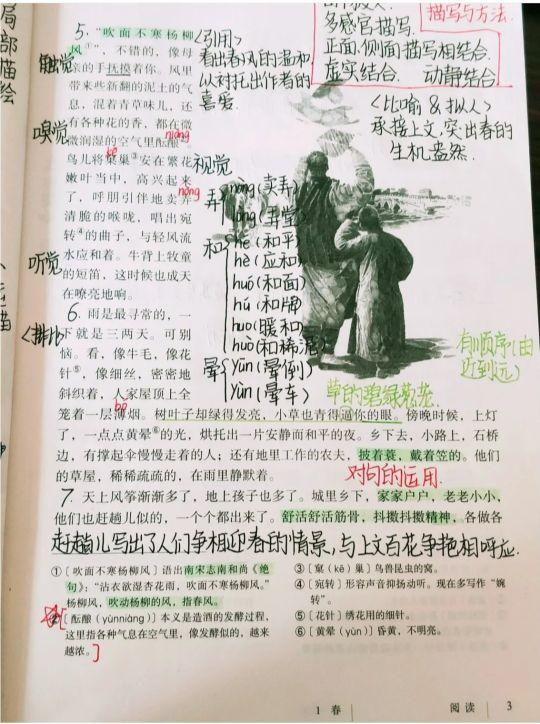 局部描绘
描写与方法.
多感官描写.
正面,侧面描写相结合.
虚实结合. 动静结合.
5. “吹面不寒杨柳
风①”,不错的,像母
亲的手抚摸着你。风里
带来些新翻的泥土的气
息,混着青草味儿,还
有各种花的香,都在微
微润湿的空气里酝酿。
鸟儿将巢②安在繁花
嫩叶当中,高兴起来
了,呼朋引伴地卖弄
清脆的喉咙,唱出宛
转④的曲子,与轻风流
水应和着。牛背上牧童
的短笛,这时候也成天
在嘹亮地响。
触觉
嗅觉
听觉
视觉
<引用>
看出春风的温和,
从衬托出作者的
喜爱.
<比喻&拟人>
承接上文,突出春的
生机盎然.
niàng
nòng
弄
nòng(卖弄)
lòng(弄堂)
和
hé(和平)
hè(应和)
huó(和面)
hú(和牌)
huo(暖和)
huò(和稀泥)
晕
yūn(晕倒)
yùn(晕车)
6. 雨是最寻常的,一
下就是三两天。可别
恼。看,像牛毛,像花
针⑤,像细丝,密密地
斜织着,人家屋顶上全
笼着一层薄烟。树叶子却绿得发亮,小草也青得逼你的眼。傍晚时候,上灯
了,一点点黄晕⑥的光,烘托出一片安静而和平的夜。乡下去,小路上,石桥
边,有撑起伞慢慢走着的人;还有地里工作的农夫,披着蓑,戴着笠的。他们
的草屋,稀稀疏疏的,在雨里静默着。
<排比>
有顺序(由
近到远)
对句的运用.
7. 天上风筝渐渐多了,地上孩子也多了。城里乡下,家家户户,老老小小,
他们也赶趟儿似的,一个个都出来了。舒活舒活筋骨,抖擞抖擞精神,各做各
赶趟儿写出了人们争相迎春的情景,与上文百花争艳相呼应.
①〔吹面不寒杨柳风〕语出南宋志南和尚《绝
句》:“沾衣欲湿杏花雨,吹面不寒杨柳风。”
杨柳风,吹动杨柳的风,指春风。
〔酝酿(yùnniàng)〕本义是造酒的发酵过程,
这里指各种气息在空气里,像发酵似的,越来
越浓。
③〔窠(kē)巢〕鸟兽昆虫的窝。
④〔宛转〕形容声音抑扬动听。现在多写作“婉
转”。
⑤〔花针〕绣花用的细针。
⑥〔黄晕(yùn)〕昏黄,不明亮。
1 春
阅读
3